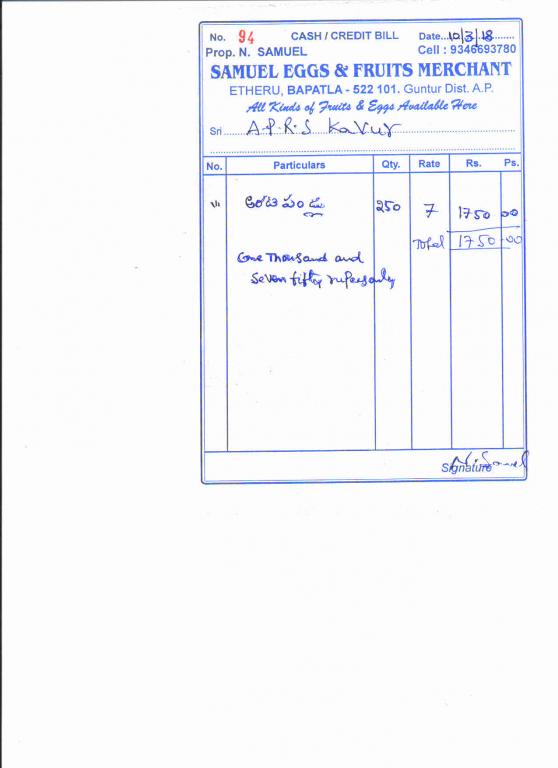 No. 94 CASH / CREDIT BILL Date...10/3/18........
Prop. N. SAMUEL Cell : 9346693780
SAMUEL EGGS & FRUITS MERCHANT
ETHERU, BAPATLA - 522 101. Guntur Dist. A.P.
All Kinds of Fruits & Eggs Available Here
Sri A.P.R.S Kavur
No. Particulars Qty. Rate Rs. Ps.
అరటి పండు 250 7 1750 00
Total 1750 00
One Thousand and
Seven fifty rupees only
N. Samuel
Signature